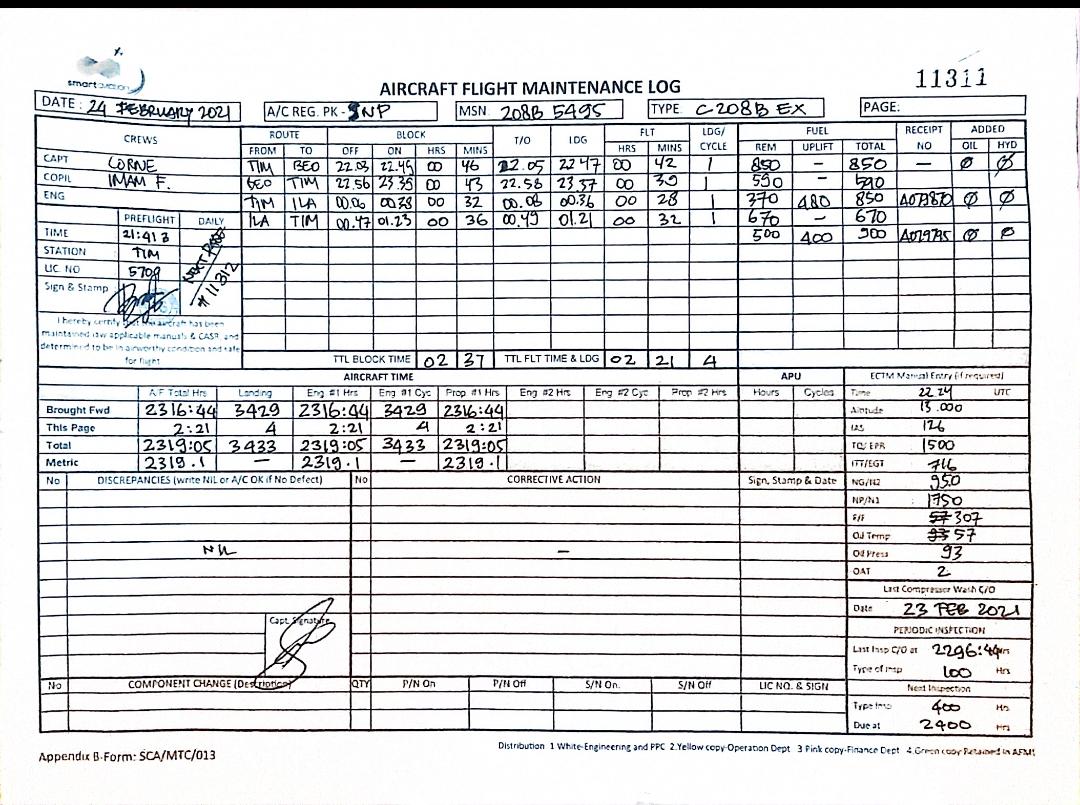 smart aviation
AIRCRAFT FLIGHT MAINTENANCE LOG
11311
DATE : 24 FEBRUARY 2021 A/C REG. PK - SNP MSN 208B 5495 TYPE C-208B EX PAGE:
CREWS ROUTE BLOCK T/O LDG FLT LDG/ CYCLE FUEL RECEIPT NO ADDED
FROM TO OFF ON HRS MINS HRS MINS REM UPLIFT TOTAL OIL HYD
CAPT LORNE TIM BEO 22.03 22.49 00 46 22.05 22 47 00 42 1 850 – 850 – Ø Ø
COPIL IMAM F. BEO TIM 22.56 23.39 00 43 22.58 23.37 00 39 1 590 – 590
ENG TIM ILA 00.06 00.38 00 32 00.08 00.36 00 28 1 370 480 850 A079870 Ø Ø
PREFLIGHT DAILY ILA TIM 00.47 01.23 00 36 00.49 01.21 00 32 1 670 – 670
TIME 21:41 500 400 900 A079795 Ø Ø
STATION TIM
LIC. NO 5709
NEXT PAGE # 11312
Sign & Stamp
I hereby certify that the aircraft has been
maintained iaw applicable manuals & CASR, and
determined to be in airworthy condition and safe
for flight
TTL BLOCK TIME 02 37 TTL FLT TIME & LDG 02 21 4
AIRCRAFT TIME APU ECTM Manual Entry (if required)
A/F Total Hrs Landing Eng #1 Hrs Eng #1 Cyc Prop #1 Hrs Eng #2 Hrs Eng #2 Cyc Prop #2 Hrs Hours Cycles Time 22 24 UTC
Brought Fwd 2316:44 3429 2316:44 3429 2316:44 Altitude 13.000
This Page 2:21 4 2:21 4 2:21 IAS 126
Total 2319:05 3433 2319:05 3433 2319:05 TQ/ EPR 1500
Metric 2319.1 – 2319.1 – 2319.1 ITT/EGT 716
No DISCREPANCIES (write NIL or A/C OK if No Defect) No CORRECTIVE ACTION Sign, Stamp & Date NG/N2 95.0
NP/N1 : 1750
F/F 57 307
Oil Temp 93 57
NIL –
Oil Press 93
OAT 2
Last Compressor Wash C/O
Date 23 FEB 2021
Capt. Signature
PERIODIC INSPECTION
Last Insp C/O at 2296:44 Hrs
Type of Insp 100 Hrs
No COMPONENT CHANGE (Description) QTY P/N On P/N Off S/N On. S/N Off LIC NO. & SIGN Next Inspection
Type Insp 400 Hrs
Due at 2400 Hrs
Distribution 1 White-Engineering and PPC 2.Yellow copy-Operation Dept 3 Pink copy-Finance Dept 4.Green copy Retained in AFML
Appendix B-Form: SCA/MTC/013